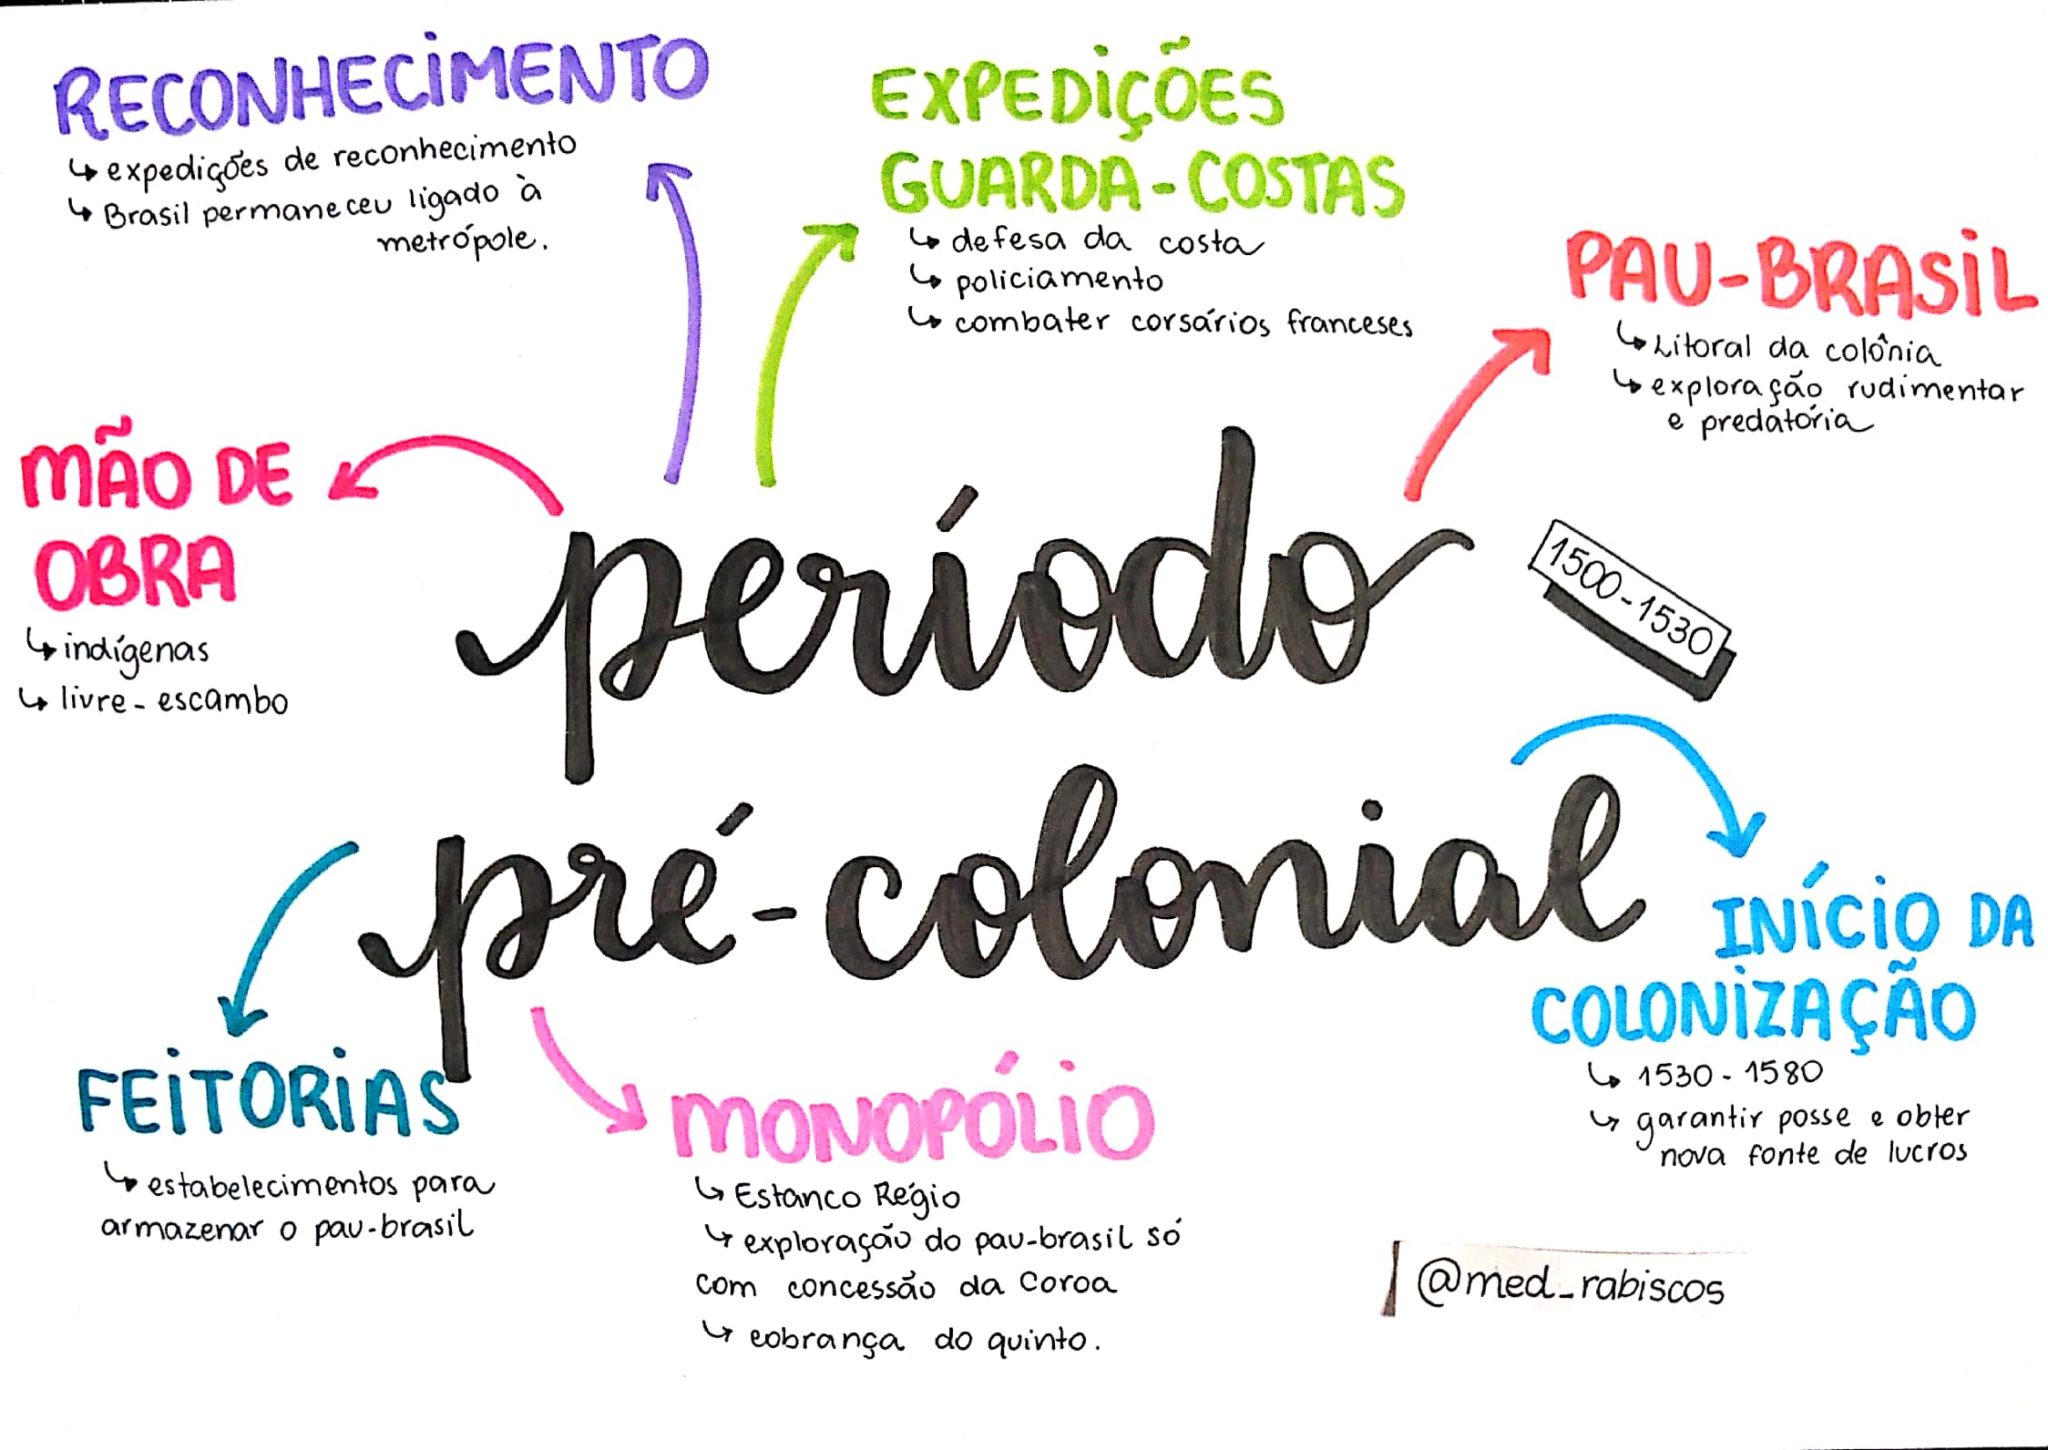 RECONHECIMENTO
↳ expedições de reconhecimento
↳ Brasil permaneceu ligado à
metrópole.
EXPEDIÇÕES
GUARDA-COSTAS
↳ defesa da costa
↳ policiamento
↳ combater corsários franceses
PAU-BRASIL
↳ Litoral da colônia
↳ exploração rudimentar
e predatória
MÃO DE
OBRA
↳ indígenas
↳ livre - escambo
período
pré-colonial
1500-1530
INÍCIO DA
COLONIZAÇÃO
↳ 1530 - 1580
↳ garantir posse e obter
nova fonte de lucros
FEITORIAS
↳ estabelecimentos para
armazenar o pau-brasil
MONOPÓLIO
↳ Estanco Régio
↳ exploração do pau-brasil só
com concessão da Coroa
↳ cobrança do quinto.
@med_rabiscos